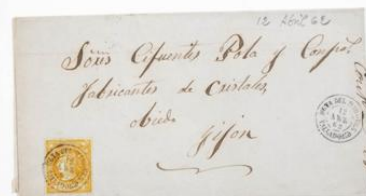 12 Abril 62
Sres Cifuentes Pola y Compª
Fabricantes de Cristales,
Oviedo
Gijon
12
ABR
62